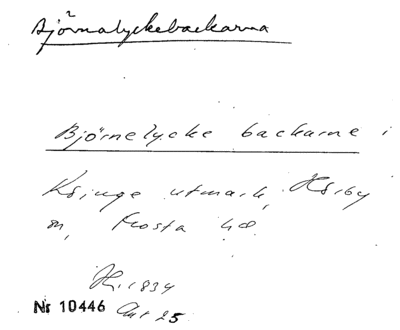 Björnalyckebackarna
Björnelycke backarne i
Ksinge utmark, Hörby
sn, Frosta hd
1834
Nr 10446 Akt 25